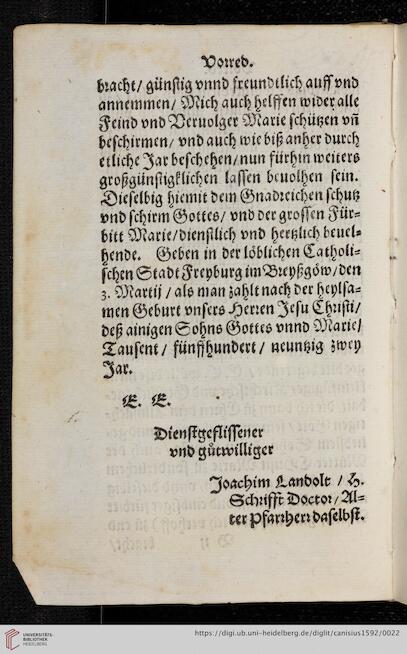 Vorred.
bracht/ günstig vnnd freundtlich auff vnd
annemmen/ Mich auch helffen wider alle
Feind vnd Veruolger Marie schützen vñ
beschirmen/ vnd auch wie biß anher durch
etliche Jar beschehen/ nun fürhin weiters
großgünstigklichen lassen beuolhen sein.
Dieselbig hiemit dem Gnadreichen schutz
vnd schirm Gottes/ vnd der grossen Für-
bitt Marie/ dienstlich vnd hertzlich beuel-
hende. Geben in der löblichen Catholi-
schen Stadt Freyburg im Breyßgöw/ den
3. Martij/ als man zahlt nach der heylsa-
men Geburt vnsers Herren Jesu Christi/
deß ainigen Sohns Gottes vnnd Marie/
Tausent/ fünffhundert/ neuntzig zwey
Jar.
E. E.
Dienstgeflissener
vnd gůtwilliger
Joachim Landolt / H.
Schrifft Doctor/ Al-
ter Pfarrherr daselbst.
UNIVERSITÄTS-
BIBLIOTHEK
HEIDELBERG
https://digi.ub.uni-heidelberg.de/diglit/canisius1592/0022